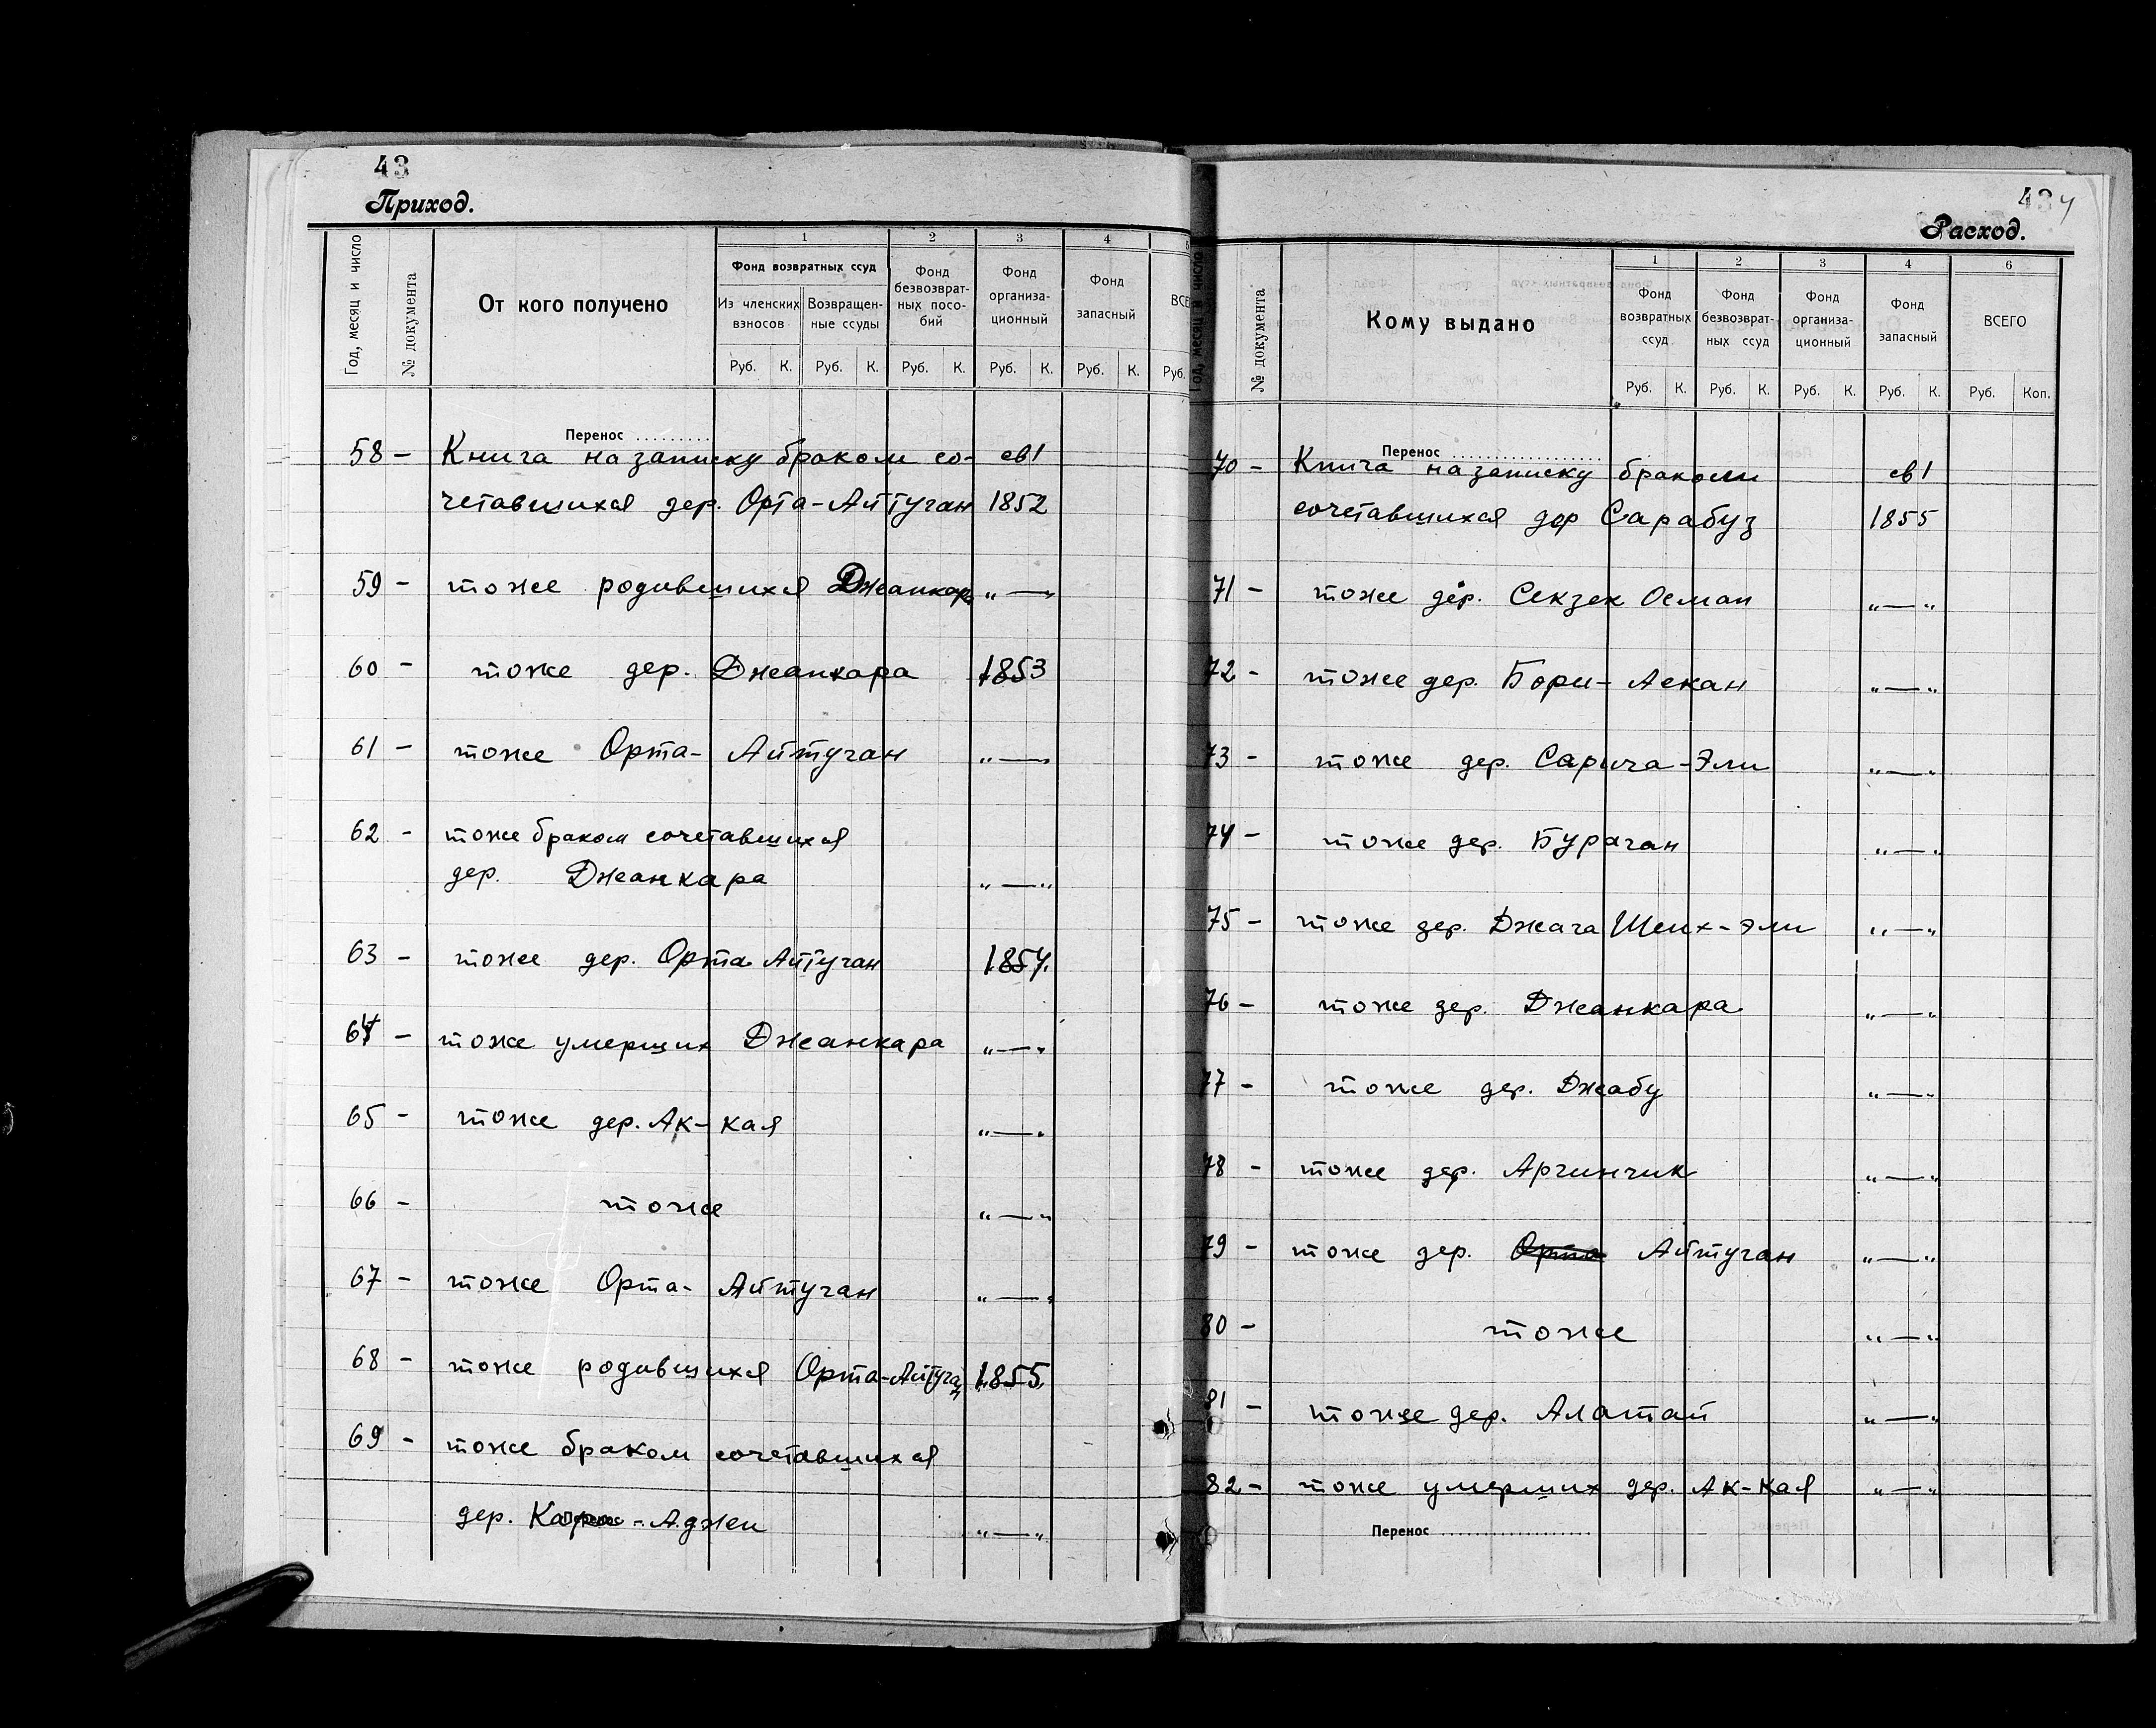 43
Приход.
Год, месяц и число
№ документа
От кого получено
1
2
3
4
Фонд возвратных ссуд
Из членских взносов
Возвращен-ные ссуды
Фонд безвозврат-ных посо-бий
Фонд организа-ционный
Фонд запасный
Руб. К. Руб. К. Руб. К. Руб. К. Руб. К. Руб.
Перенос .........
58 - Книга на записку браком со- св1
четавшихся дер. Орта-Айтуган 1852
59 - тоже родившихся Джанкара „—„
60 - тоже дер. Джанкара 1853
61 - тоже Орта-Айтуган „—„
62 - тоже браком сочетавшихся
дер. Джанкара „—„
63 - тоже дер. Орта Айтуган 1854.
64 - тоже умерших Джанкара „—„
65 - тоже дер. Ак-кая „—„
66 - тоже „—„
67 - тоже Орта-Айтуган „—„
68 - тоже родившихся Орта-Айтуган 1855
69 - тоже браком сочетавшихся
дер. -Аджи „—„
434
Расход.
Год, месяц и число
№ документа
Кому выдано
1
2
3
4
6
Фонд возвратных ссуд
Фонд безвозврат-ных ссуд
Фонд организа-ционный
Фонд запасный
ВСЕГО
Руб. К. Руб. К. Руб. К. Руб. К. Руб. Коп.
Перенос ....................
70 - Книга на записку браком св1
сочетавшихся дер Сарабуз 1855
71 - тоже дер. Секзек Осман „—„
72 - тоже дер. Бори-Аскан „—„
73 - тоже дер. Сарича-Эли „—„
74 - тоже дер. Бурачан „—„
75 - тоже дер. Джага Шеих-Эли „—„
76 - тоже дер. Джанкара „—„
77 - тоже дер. Джабу „—„
78 - тоже дер. Аргинчик „—„
79 - тоже дер. Орта Айтуган „—„
80 - тоже „—„
81 - тоже дер. Алатай „—„
82 - тоже умерших дер. Ак-Кая „—„
Перенос ....................